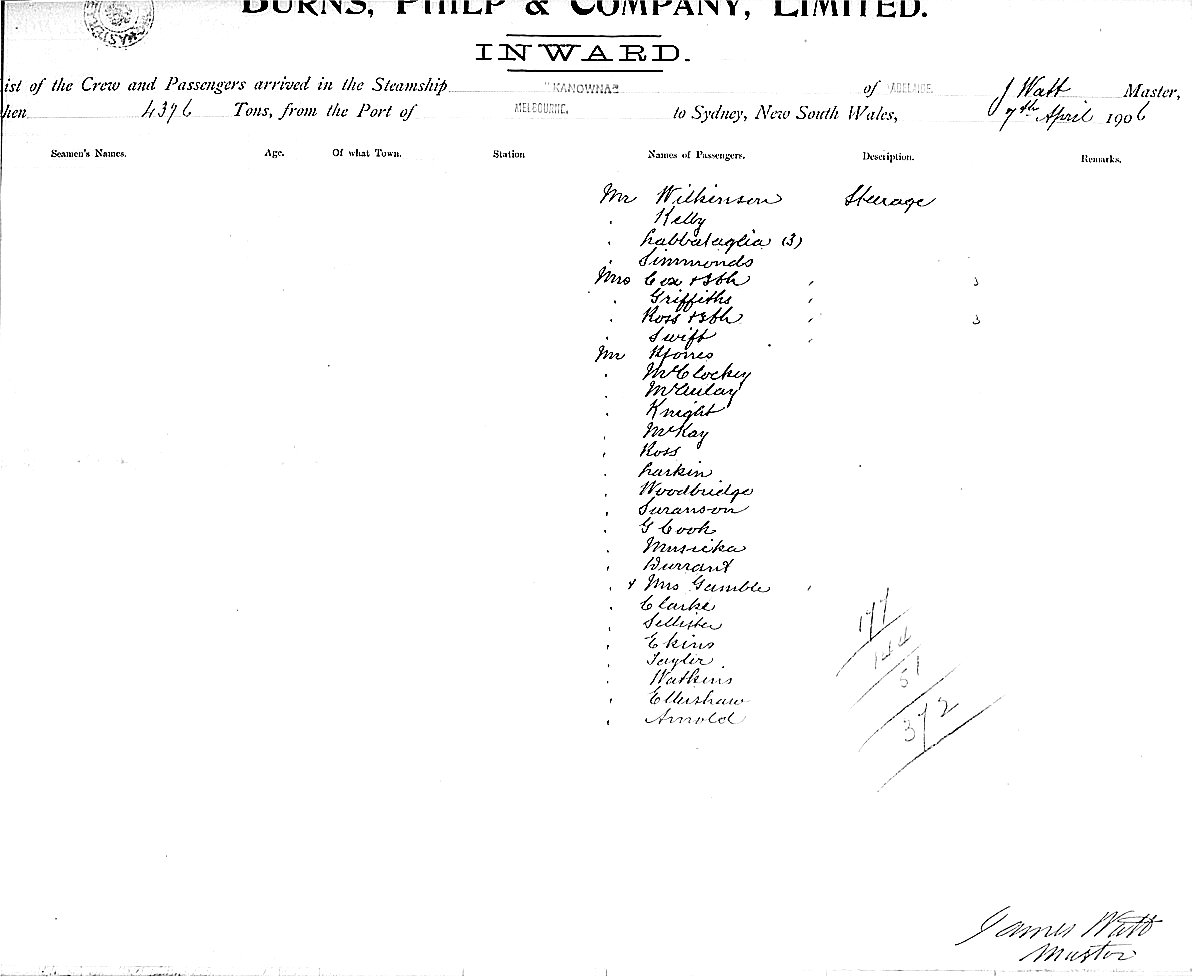 BURNS, PHILP & COMPANY, LIMITED.
INWARD.
ist of the Crew and Passengers arrived in the Steamship "KANOWNA" of ADELAIDE. J Watt Master,
hen 4376 Tons, from the Port of MELBOURNE. to Sydney, New South Wales, 7th April 1906
Seamen's Names. Age. Of what Town. Station Names of Passengers. Description. Remarks.
Mr Wilkinson Steerage
" Kelly
" Labbataglia (3)
" Simmonds
Mrs Cox & 3ch " 3
" Griffiths "
" Ross & 3ch " 3
" Swift "
Mr Hjones
" McClockey
" McAulay
" Knight
" McKay
" Ross
" Larkin
" Woodbridge
" Swanson
" G Cook
" Musicka
" Durrant
" & Mrs Gamble "
" Clarke
" Sellister
" Ekins
" Taylor
" Watkins
" Ellershaw
" Arnold
177
144
51
372
James Watt
Master